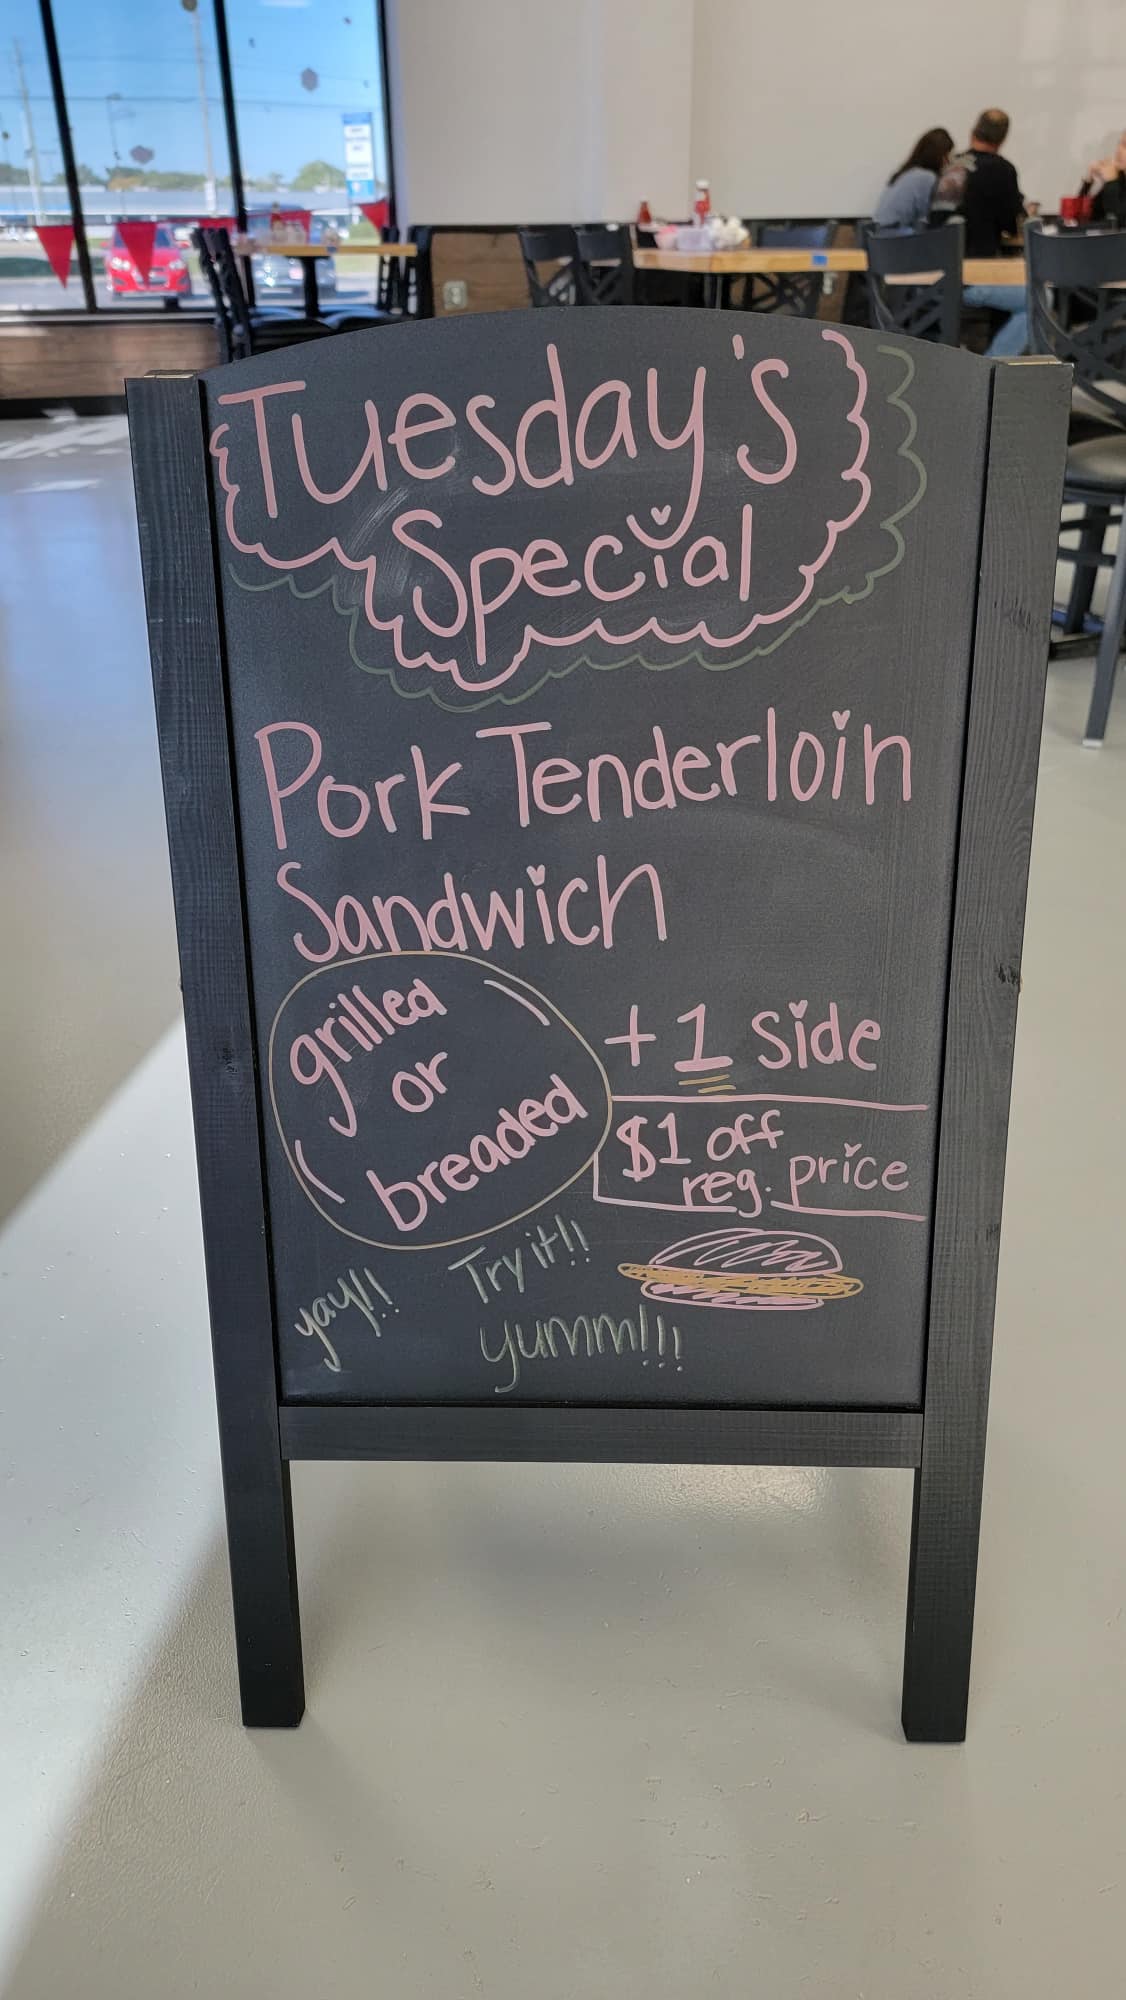 Tuesday's
Special
Pork Tenderloin
Sandwich
grilled
or
breaded
+ 1 side
$1 off
reg. price
yay!!
Try it!!
yumm!!!